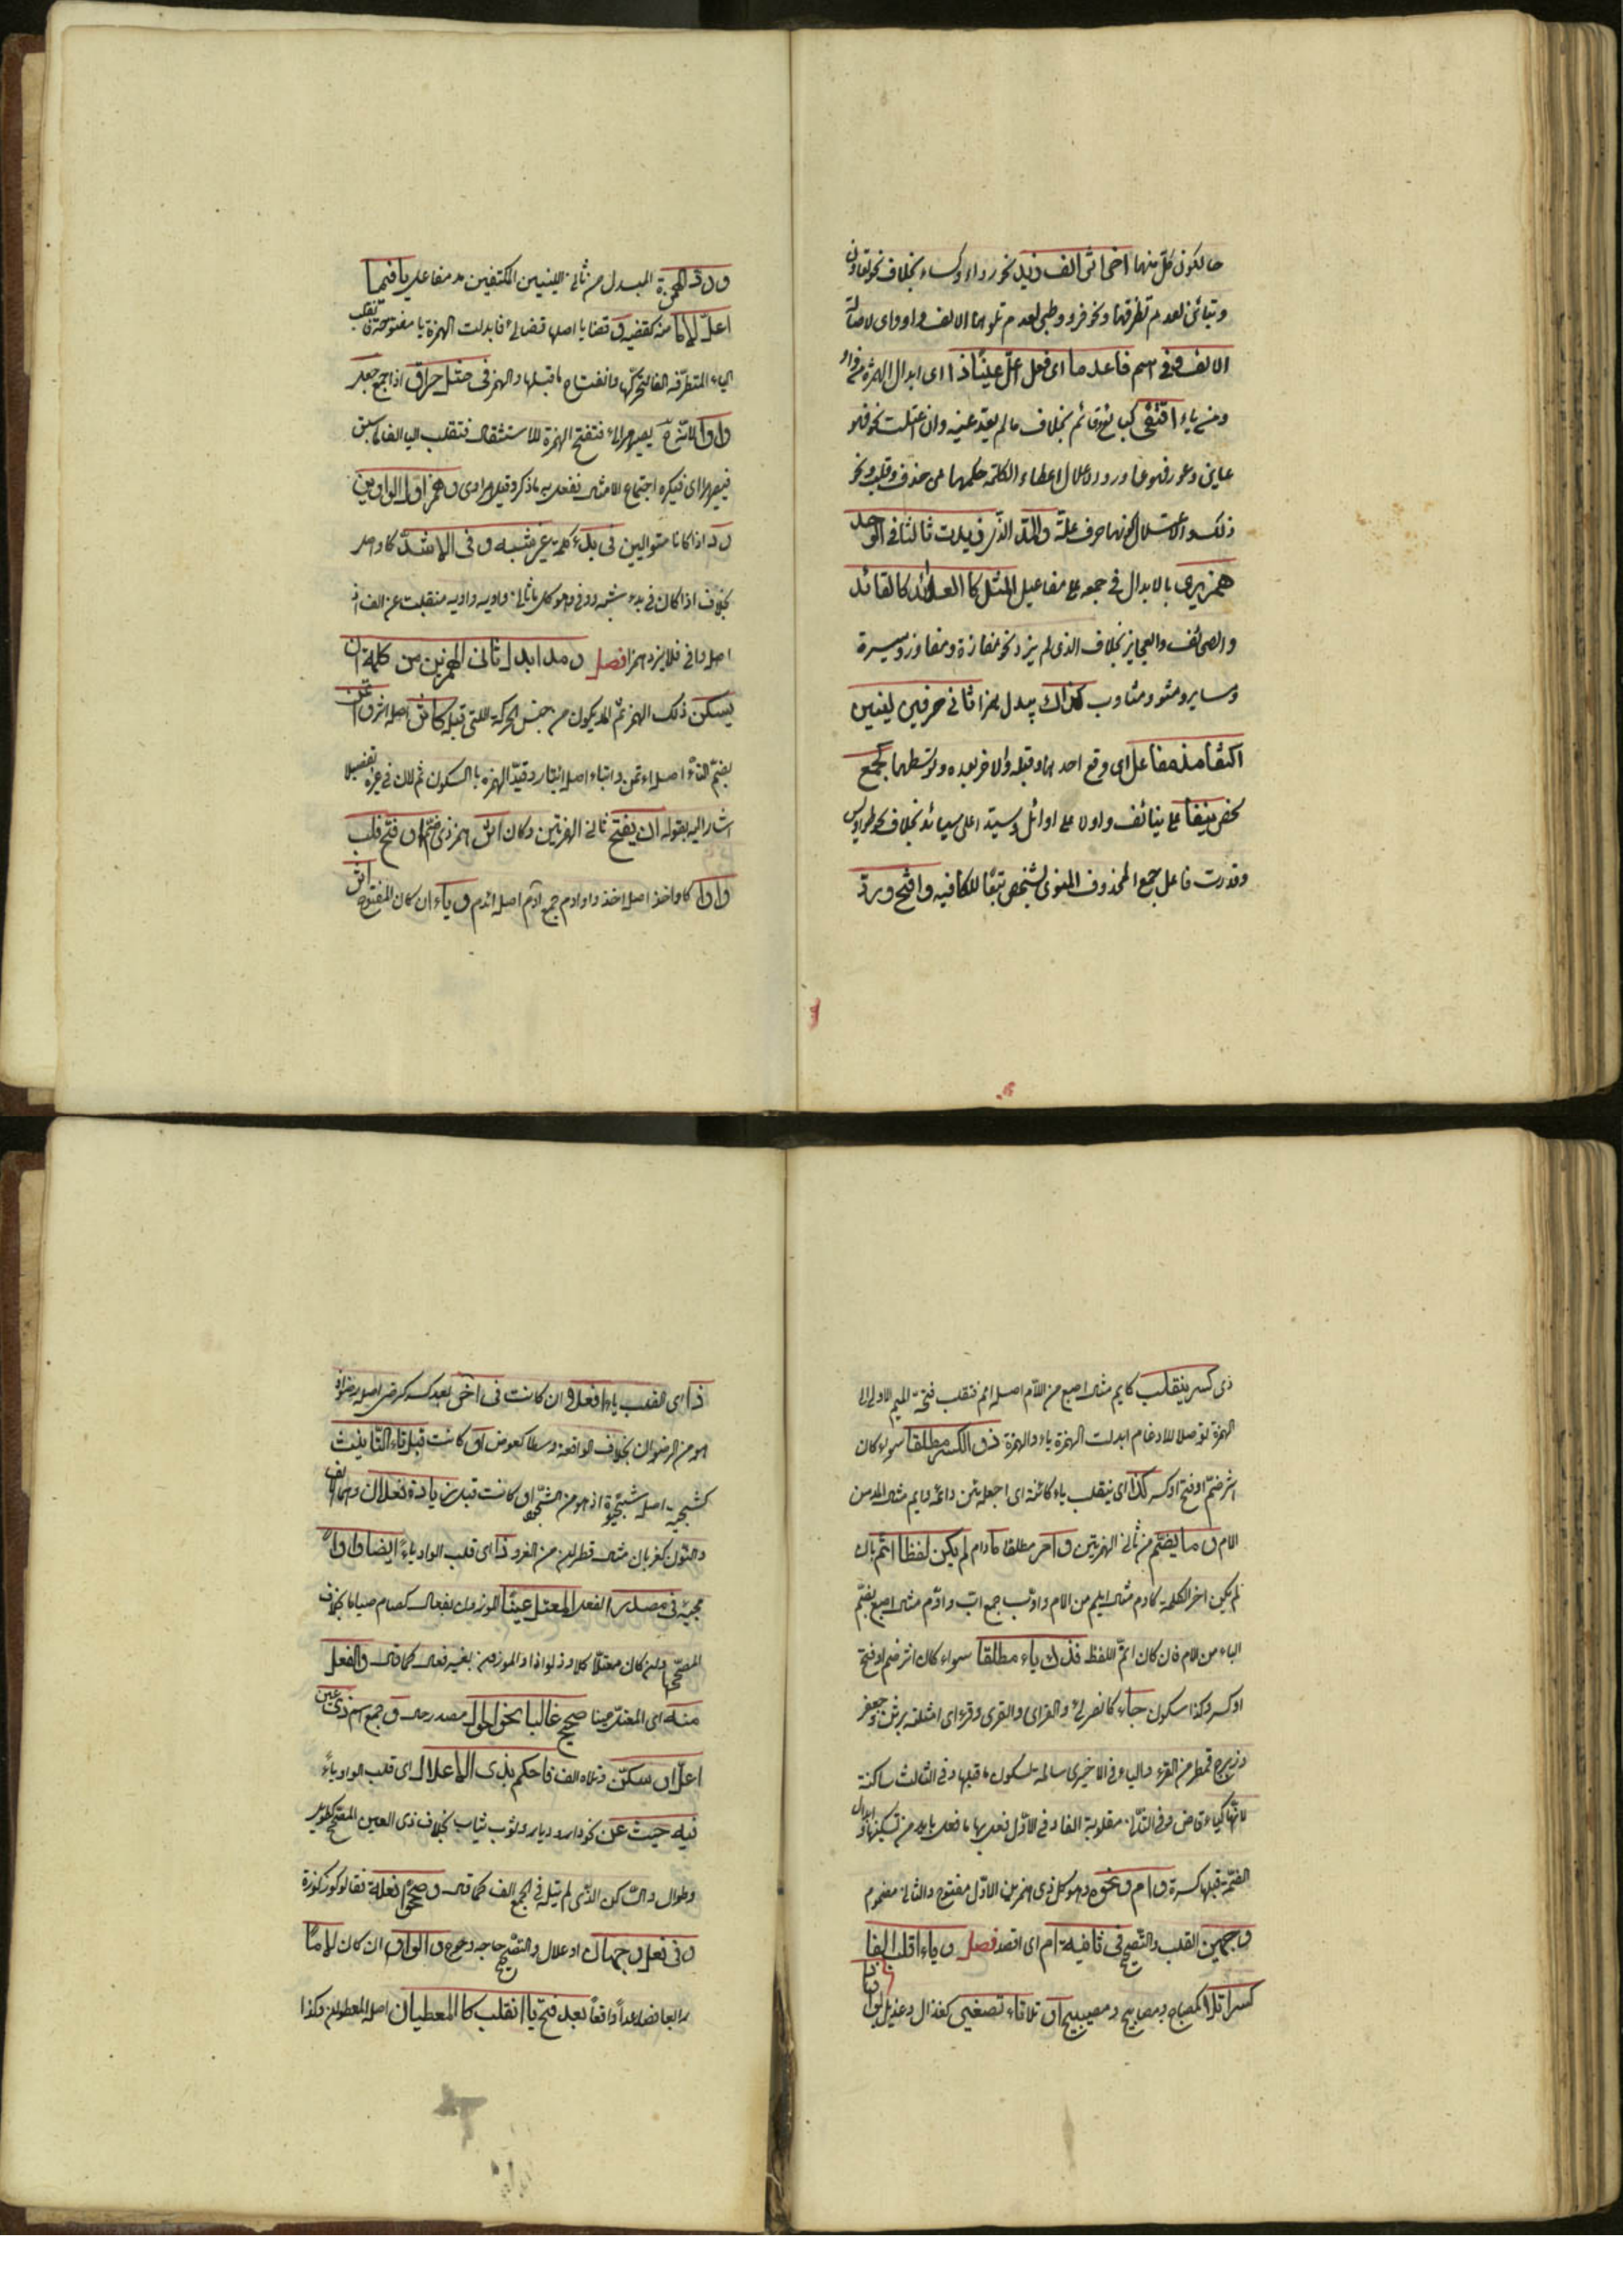 حالكونى كل منهما اخر اثر الف زيد نحو رداء وكساء بخلاف نحو تعاون
وتبائن لعدم تطرفهما ونحو غزو وظبى لعدم تلوهما الالف و او واى لاصالة
الالف وفى اسم فاعل ما اى فعل اعل عينا ذا اى ابدال الهمزة من واو
ومن ياء اقتفى كبائع وقائم بخلاف ما لم يعل عينه وان اعتلت نحو فهو
عاين وعور فهو عاور والاعلال اعطاء الكلمة حكمها من حذف وقلب ونحو
ذلك والاعتلال كونها حرف علة والمد الذى زيد ثالثا فى الواحد
همزا يرى بالابدال فى جمعه على مفاعل مثل كالقلائد
والصحائف والعجايز بخلاف الذى لم يزد نحو مفازة ومفاوز ومسيرة
ومساير ومثوبة ومثاوب كذاك يبدل همزا ثانى حرفين لينين
اكتنفا مد مفاعل اى وقع احدهما قبله والاخر بعده وتوسطهما كجمع
شخص نيفا على نيائف واول على اوائل وسيد على سيائد بخلاف نحو طواويس
وقدرت فاعل جمع المحذوف المنوى بشخص تبعا للكافيه وافتح ورد
ورد الهمزة المبدل من ثانى اللينين المكتنفين مد مفاعل يا فيما
اعل لاما منه كقضية وقضايا اصلها قضائى فابدلت الهمزة يا مفتوحة فتقلب
الياء المتطرفة الفا لتحركها وانفتاح ما قبلها والهمز فى مثل هراوة اذا جمع جعل
واوا لانه يصير هرائو فتفتح الهمزة للاستثقال فتقلب اليا الفا كما سبق
فيصير هراءا فيكره اجتماع الامثال فيفعل به ما ذكر وقيل هراوى وهمزا اول الواوين
رد اذا كانا متواليين فى بدء كلمة غير شبه ووفى الاشد كاواصل
بخلاف اذا كان فى بدء شبه ووفى وهو كل ما ثانى واويه واويه منقلبة عن الف اذ
اصله وافى فلا يرد همزا فصل ومدا ابدل ثانى الهمزين من كلمة ان
يسكن ذلك الهمز ثم المد يكون من جنس الحركة اللتى قبله كآثر اصله اءثر وائتمن
بضم التاء اصله اءتمن وايثار اصله ائثار وقيد الهمزة بالسكون ثم لان فى غيره تفصيلا
اشار اليه بقوله ان يفتح ثانى الهمزتين وكان اثر همز ذى ضم او فتح قلب
واوا كاواخذ اصله اءاخذ واوادم جمع آدم اصله اءادم وياء ان كان المفتوح اثر
ذى كسر ينقلب كايم مثال اصبع من الام اصله اءمم فنقلت فتحة الميم الاولى الى
الهمزة توصلا للادغام ابدلت الهمزة ياء والهمزة ذو الكسر مطلقا سواء كان
اثر ضم او فتح او كسر كذا اى ينقلب ياء كائنة اى اجعله يئن
الام وما يضم من ثانى الهمزتين واوا صر مطلقا مادام لم يكن لفظا اتم بان
لم يكن اخر الكلمة كاوم مثال ابلم من الام واوب جمع اب واوم مثال اصبع بضم
الباء من الام فان كان اتم اللفظ فذاك ياء مطلقا سواء كان اثر ضم او فتح
او كسر وكذا سكون جاء كالقرائى والقرأى والقرى وقرءاى امثلة برثن وجعفر
وزبرج وقمطر من القرء والياء فى الاخير سالمة لسكون ما قبلها وفى الثالث ساكنة
لانها كياء قاض وفى الثانى مقلوبة الفا وفى الاول فعل بها ما فعل بايد من تسكينها وابدال
الضمة قبلها كسرة وأوم ونحوه وهو كل ذى همزين الاول مفتوح والثانى مضموم
وجهين القلب والتصحيح فى ثانيه ام اى اقصد فصل وياء اقلب الفا
كسرا تلا كمصباح ومصابيح ومصيبيح او تلا ياء تصغير كغزال وغزيل بواو
ذا اى القلب ياء افعلا وان كانت فى آخر بعد كسر كرضى اصله رضو اذ
هو من الرضوان بخلاف الواقعة وسطا كعوض او كانت قبل تاء التانيث
كشجية اصله شجوة اذ هو من الشجو او كانت قبل زيادتى فعلان وهما الالف
والنون كغزيان مثال قطران من الغزو ذا اى قلب الواو ياء ايضا رأوا
مجيئه فى مصدر الفعل المعتل عينا الموزون بفعال كصام صياما بخلاف
المصحح وان كان معتلا كلاوذ لواذا والموزون بغير فعال كما قال والفعل
منه اى المعتل عينا صحيح غالبا نحو الحول مصدر حال وجمع اسم ذى عين
اعل او سكن وتلاه الف فاحكم بذى الاعلال اى قلب الواو ياء
فيه حيث عن نحو دار وديار وثوب وثياب بخلاف ذى العين المصحح كطويل
وطوال والساكن الذى لم يتله فى الجمع الف كما قال وصححوا فعلة فقالوا كوز وكوزة
وفى فعل وجهان اعلال والتصحيح حاجة وحوج والواو ان كان لاما
رابعا فصاعدا واقعا بعد فتح يا انقلب كالمعطيان اصله المعطوان وكذا